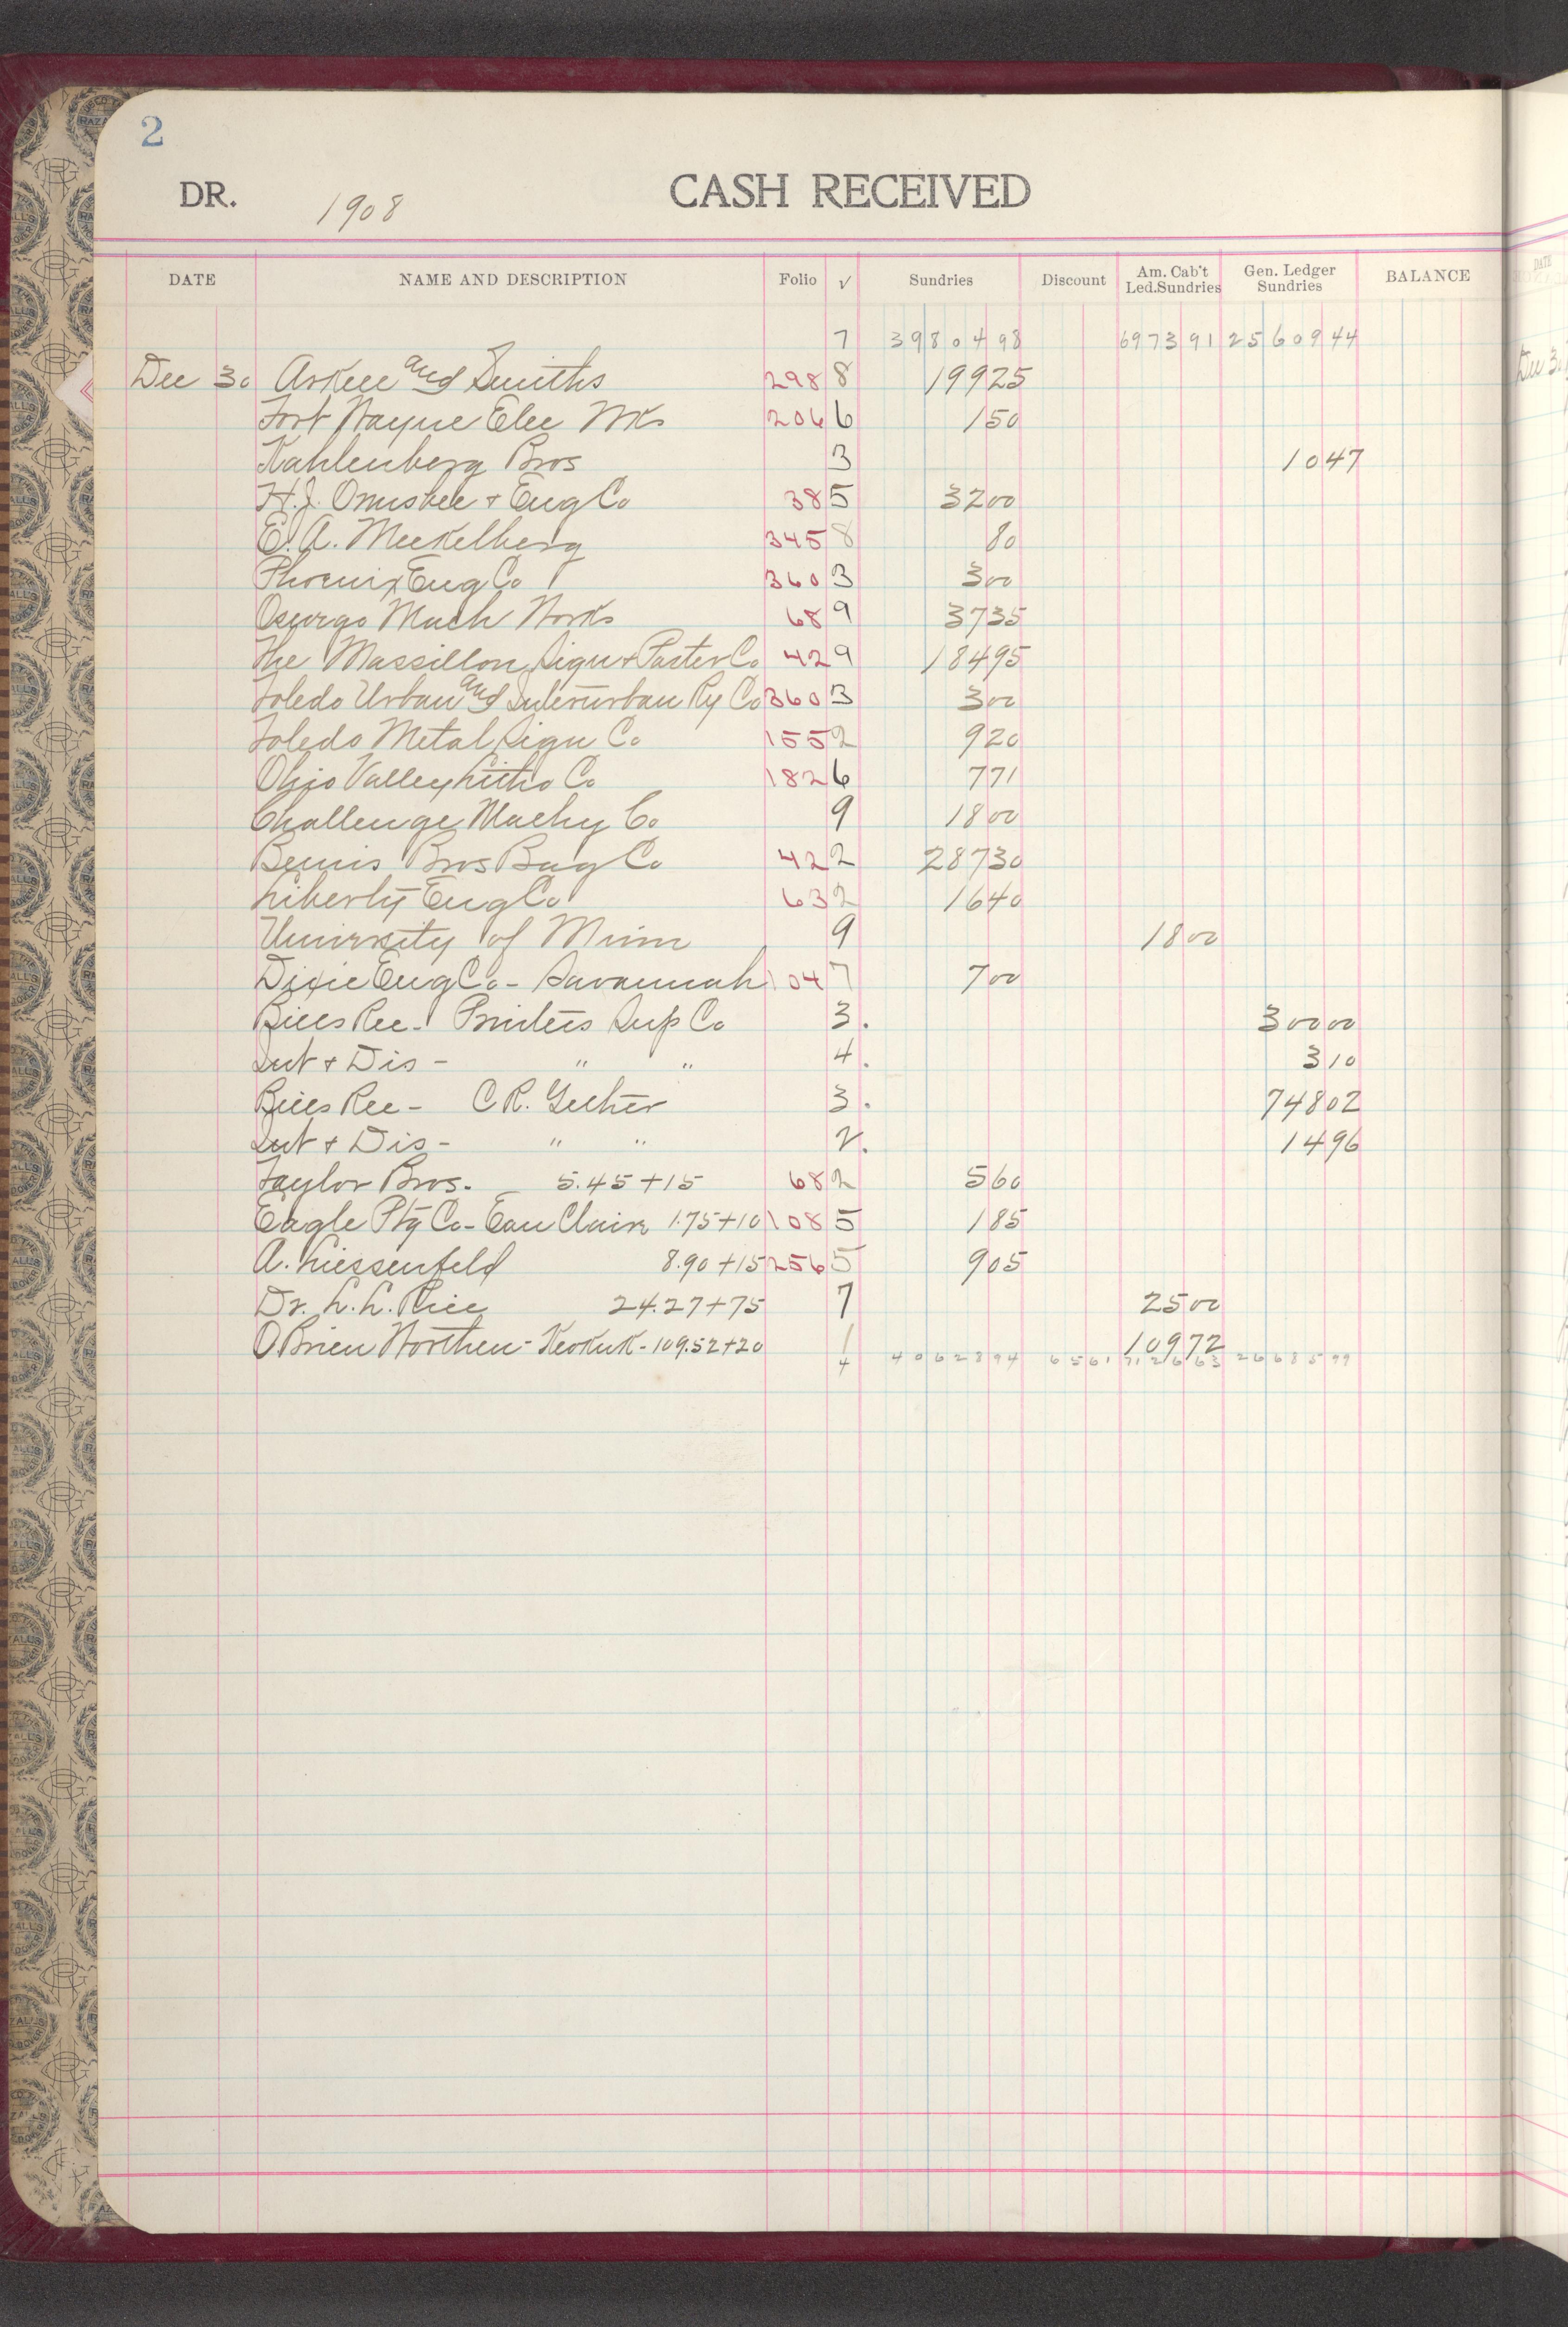 2
DR. 1908 CASH RECEIVED
DATE NAME AND DESCRIPTION Folio √ Sundries Discount Am. Cab't Led.Sundries Gen. Ledger Sundries BALANCE
7 39804 98 6973 91 25609 44
Dec 30 Arkell and Smiths 298 8 199 25
Fort Wayne Elec Wks 204 6 1 50
Kahlenberg Bros 3 10 47
H.J. Ormsbee & Eng Co 38 5 32 00
E. A. Meekelberg 345 8 80
Phoenix Eng Co 360 3 3 00
Oswego Mach Works 68 9 37 35
The Massillon Sign & Poster Co 42 9 184 95
Toledo Urban and Interurban Ry Co 360 3 3 00
Toledo Metal Sign Co 155 2 9 20
Ohio Valley Litho Co 182 6 7 71
Challenge Machy Co 9 18 00
Bemis Bros Bag Co 42 2 287 30
Liberty Eng Co 63 2 16 40
University of Minn 9 18 00
Dixie Eng Co - Savannah 104 7 7 00
Bills Rec - Printers Sup Co 3. 300 00
Int & Dis - " " 4. 3 10
Bills Rec - C R. Gether 3. 748 02
Int & Dis - " " 2. 14 96
Taylor Bros. 5.45 + 15 68 2 5 60
Eagle Ptg Co - Eau Claire 1.75 + 10 108 5 1 85
A. Liessenfeld 8.90 + 15 256 5 9 05
Dr. L. L. Rice 24.27 + 75 7 25 00
O'Brien Northen - Keokuk - 109.52 + 20 1 109 72
4 40628 94 65 61 7126 63 26685 99
DATE
Dec 30